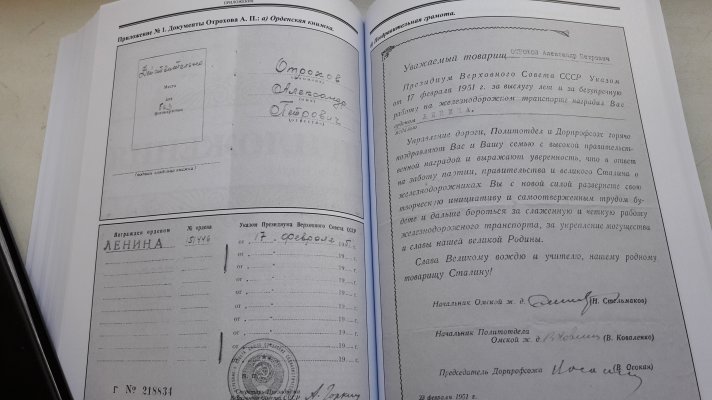 ПРИЛОЖЕНИЕ
Приложение № 1. Документы Отрохова А. П.: а) Орденская книжка.
Действительно
Место
для
без
фотокарточки
(подпись владельца книжки)
Отрохов
(фамилия)
Александр
(имя)
Петрович
(отчество)
Награжден орденом
№ ордена
Указом Президиума Верховного Совета СССР
ЛЕНИНА
от 17 февраля 1951 г.
от 19 г.
от 19 г.
от 19 г.
от 19 г.
от 19 г.
от 19 г.
от 19 г.
Г № 218834
А. Горкин
Поздравительная грамота.
Уважаемый товарищ ОТРОХОВ Александр Петрович
Президиум Верховного Совета СССР Указом
от 17 февраля 1951 г. за выслугу лет и за безупречную
работу на железнодорожном транспорте наградил Вас
орденом ЛЕНИНА.
медалью
Управление дороги, Политотдел и Дорпрофсож горячо
поздравляют Вас и Вашу семью с высокой правительст-
венной наградой и выражают уверенность, что в ответ
на заботу партии, правительства и великого Сталина о
железнодорожниках Вы с новой силой развернете свою
творческую инициативу и самоотверженным трудом бу-
дете и дальше бороться за слаженную и четкую работу
железнодорожного транспорта, за укрепление могущества
и славы нашей великой Родины.
Слава Великому вождю и учителю, нашему родному
товарищу Сталину!
Начальник Омской ж. д. (Н. Стельмаков)
Начальник Политотдела
Омской ж. д. (В. Коваленко)
Председатель Дорпрофсожа (В. Осокин)
февраля 1951 г.